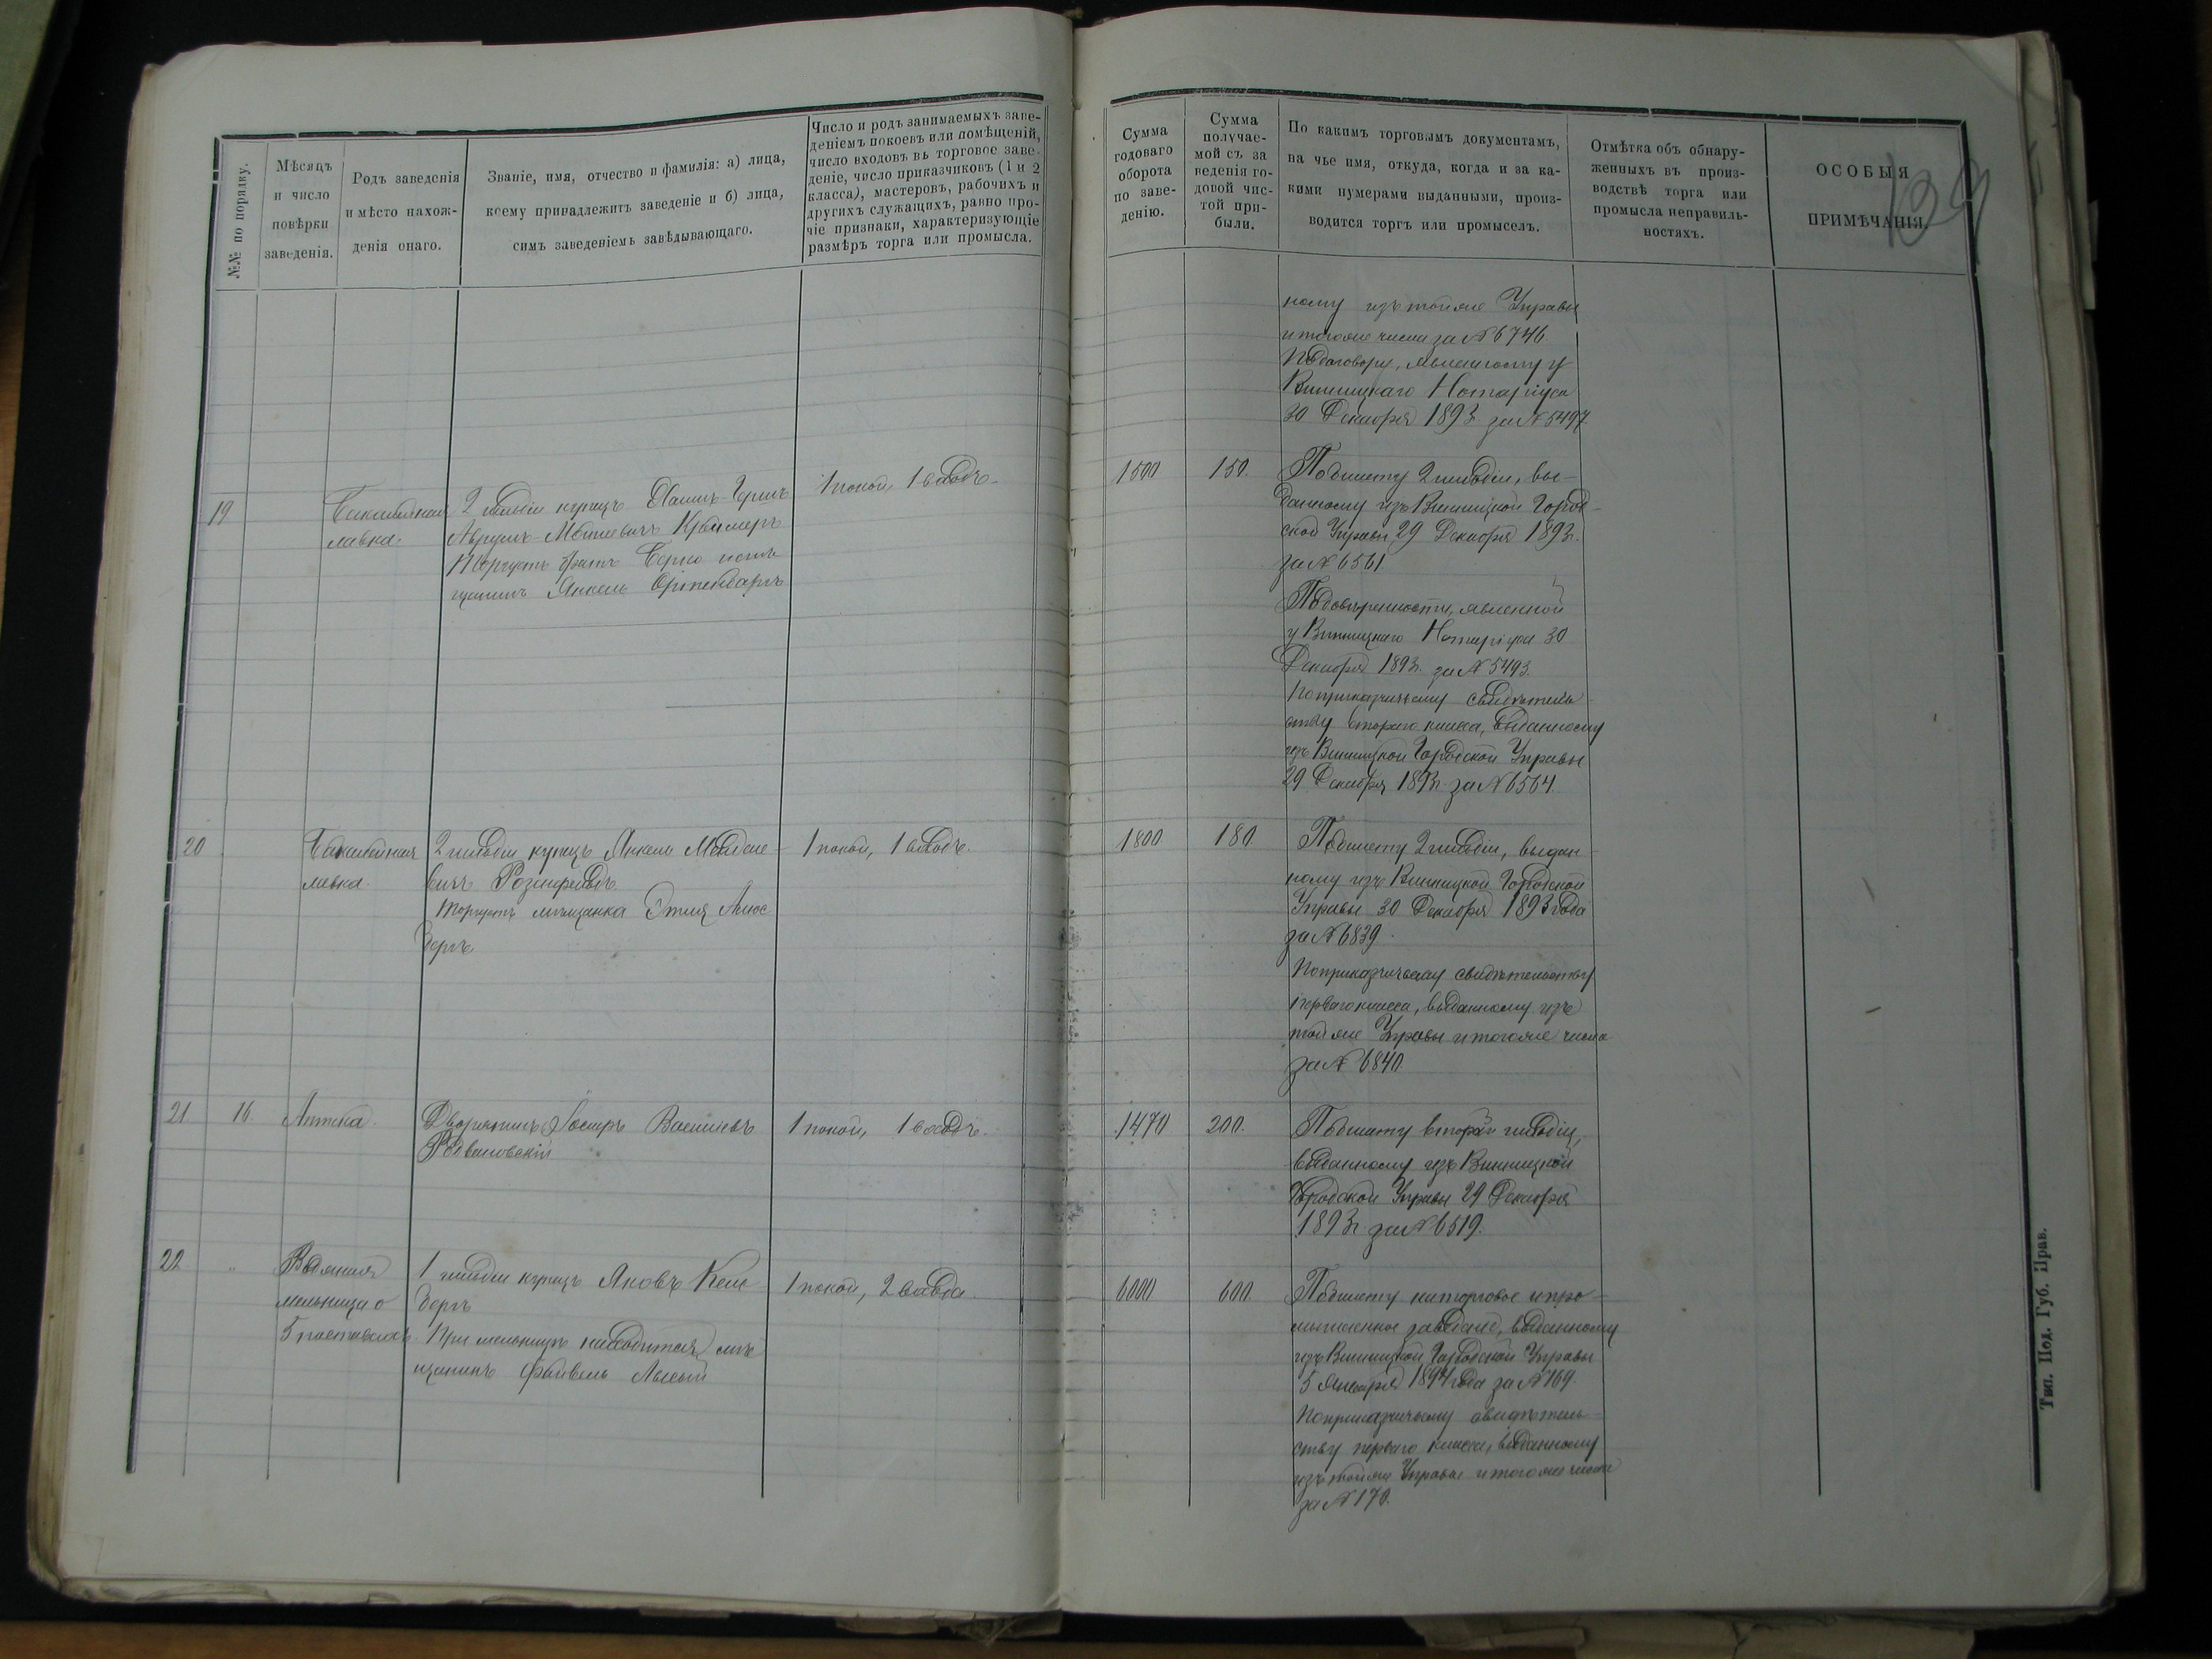 №№ по порядку.
Мѣсяцъ
и число
повѣрки
заведенія.
Родъ заведенія
и мѣсто нахож-
денія онаго.
Званіе, имя, отчество и фамилія: а) лица,
коему принадлежитъ заведеніе и б) лица,
симъ заведеніемъ завѣдывающаго.
Число и родъ занимаемыхъ заве-
деніемъ покоевъ или помѣщеній,
число входовъ въ торговое заве-
деніе, число приказчиковъ (1 и 2
класса), мастеровъ, рабочихъ и
другихъ служащихъ, равно про-
чіе признаки, характеризующіе
размѣръ торга или промысла.
Сумма
годоваго
оборота
по заве-
денію.
Сумма
получае-
мой съ за
веденія го-
довой чис-
той при-
были.
По какимъ торговымъ документамъ,
на чье имя, откуда, когда и за ка-
кими нумерами выданными, произ-
водится торгъ или промыселъ.
Отмѣтка объ обнару-
женныхъ въ произ-
водствѣ торга или
промысла неправиль-
ностяхъ.
ОСОБЫЯ
ПРИМѢЧАНІЯ.
139
ному изъ тойже Управы
и тогоже числа за № 6746.
По договору, явленному у
Винницкаго Нотаріуса
30 Декабря 1893 за № 5497
19
Бакалейная
лавка.
2 гильдіи купецъ
Аврумъ Крамеръ
Торгуетъ
Янкель
1 покой, 1 входъ.
1500
150.
По билету 2 гильдіи, вы-
данному изъ Винницкой Город-
ской Управы 29 Декабря 1893г.
за № 6561.
По довѣренности, явленной
у Винницкаго Нотаріуса 30
Декабря 1893г. за № 5493.
По приказчичьему свидѣтель-
ству втораго класса, выданному
изъ Винницкой Городской Управы
29 Декабря 1893г. за № 6564.
20
Бакалейная
лавка.
2 гильдіи купецъ Янкель Менделе-
вичъ Розенфельдъ
Торгуетъ мѣщанка
1 покой, 1 входъ.
1800
180
По билету 2 гильдіи, выдан-
ному изъ Винницкой Городской
Управы 30 Декабря 1893 года
за № 6839.
По приказчичьему свидѣтельству
перваго класса, выданному изъ
той же Управы и тогоже числа
за № 6840.
21
16.
Аптека.
Дворянинъ
1 покой, 1 входъ.
1470
200.
По билету второй гильдіи,
выданному изъ Винницкой
Городской Управы 29 Декабря
1893г. за № 6519.
22
"
Водяная
мельница о
5 поставахъ
1 гильдіи купецъ Яковъ Кель-
бергъ
При мельницѣ находится мѣ-
щанинъ Файвель Лысый
1 покой, 2 входа.
6000
600.
По билету на торговое и про-
мышленное заведеніе, выданному
изъ Винницкой Городской Управы
5 Января 1894 года за № 169.
По приказчичьему свидѣтель-
ству перваго класса, выданному
изъ тойже Управы и тогоже числа
за № 170.
Тип. Под. Губ. Прав.